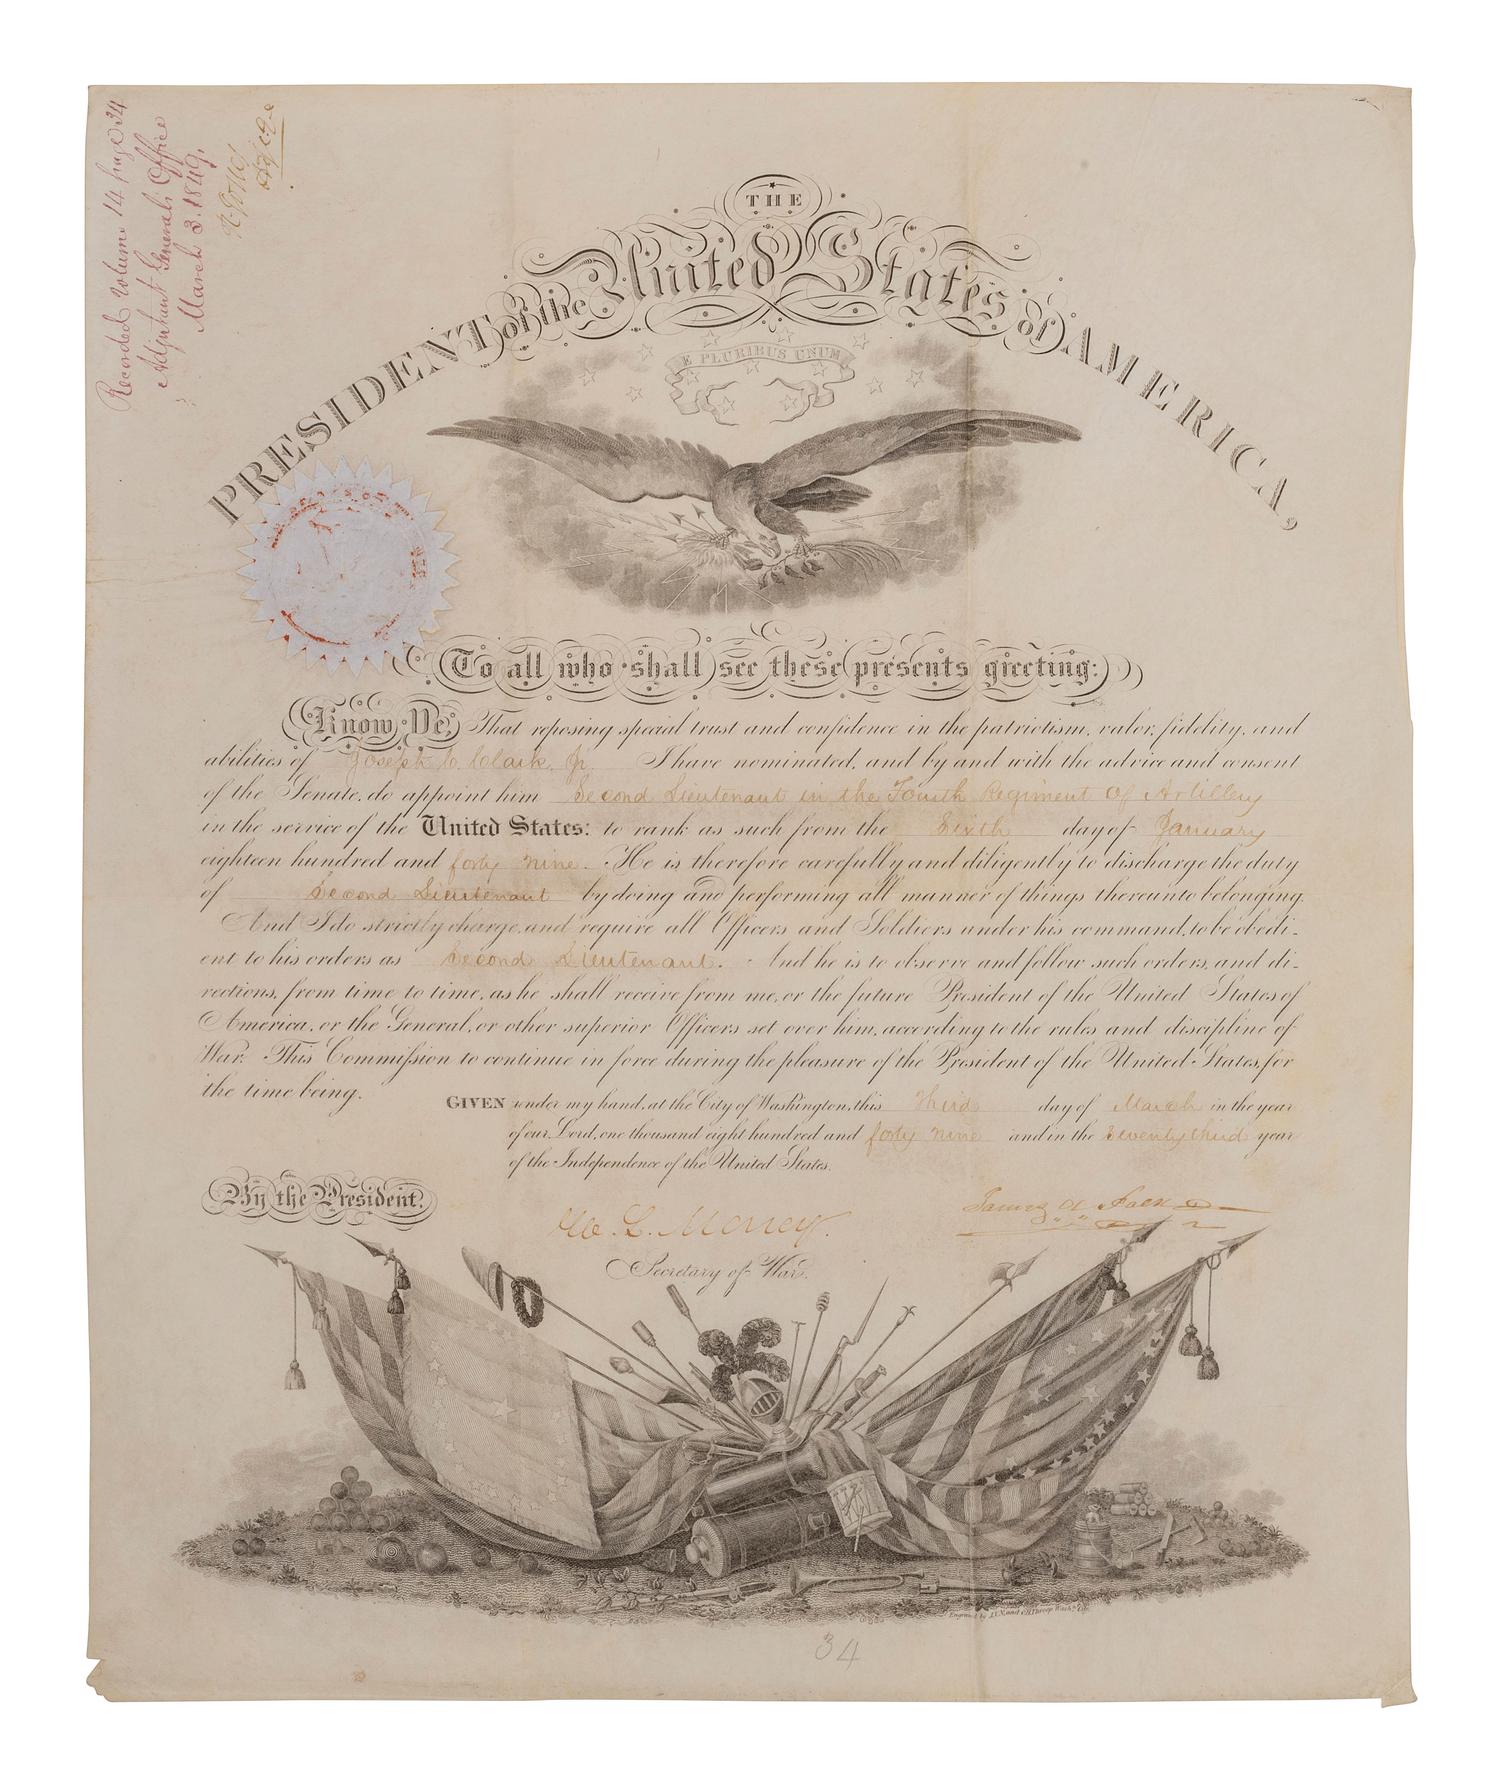 Recorded Volume 14 page 34
Adjutant Generals Office
March 3. 1849.
THE
PRESIDENT of the United States of AMERICA,
E PLURIBUS UNUM
To all who shall see these presents greeting:
Know Ye, That reposing special trust and confidence in the patriotism, valor, fidelity, and
abilities of Joseph C. Clark, Jr. I have nominated, and by and with the advice and consent
of the Senate, do appoint him Second Lieutenant in the Fourth Regiment of Artillery
in the service of the United States: to rank as such from the Sixth day of January
eighteen hundred and forty nine. He is therefore carefully and diligently to discharge the duty
of Second Lieutenant by doing and performing all manner of things thereunto belonging.
And I do strictly charge, and require all Officers and Soldiers under his command, to be obedi-
ent to his orders as Second Lieutenant. And he is to observe and follow such orders, and di-
rections, from time to time, as he shall receive from me, or the future President of the United States of
America, or the General, or other superior Officers set over him, according to the rules and discipline of
War. This Commission to continue in force during the pleasure of the President of the United States, for
the time being.
GIVEN under my hand, at the City of Washington, this Third day of March in the year
of our Lord, one thousand eight hundred and forty nine and in the Seventy third year
of the Independence of the United States.
By the President.
James K. Polk
W. L. Marcy.
Secretary of War.
34